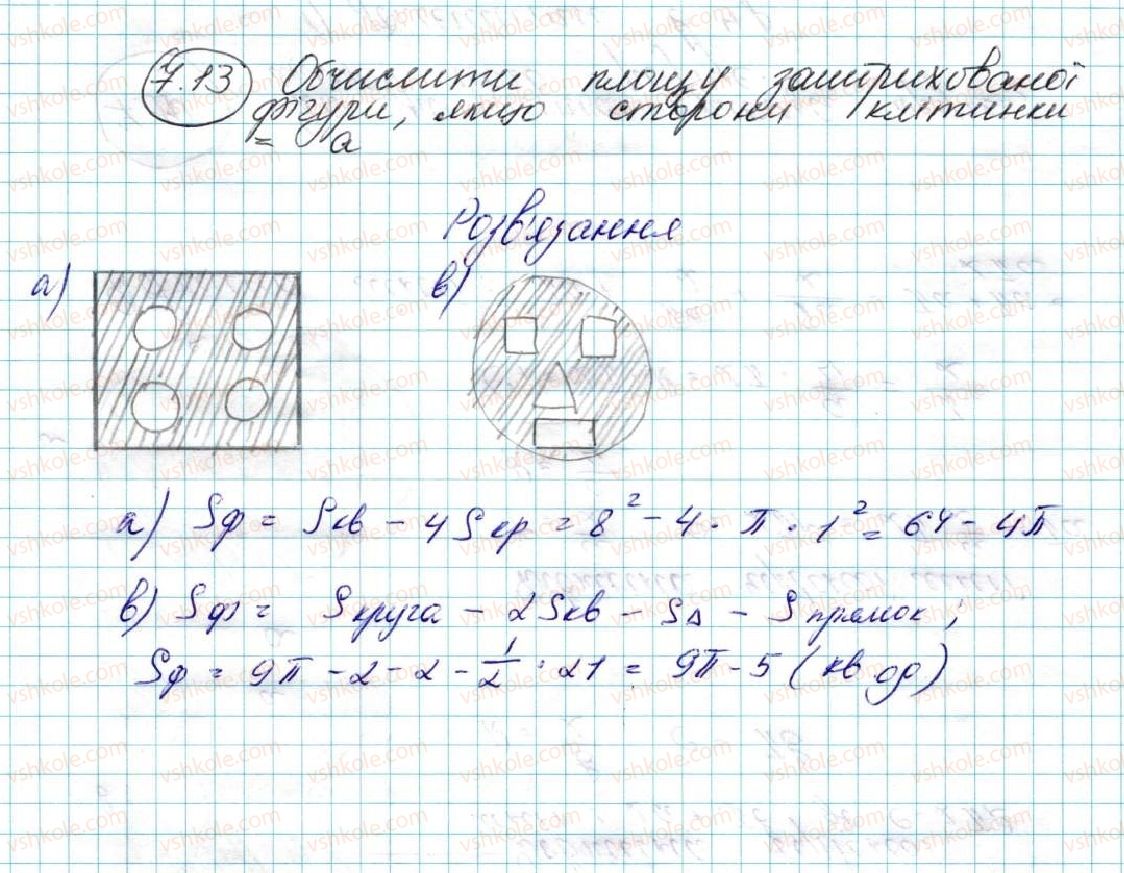 7.13 Обчислити площу заштрихованої
фігури, якщо сторони клітинки
= a
Розв'язання
а) в)
а) Sф = Sкв - 4Sкр = 8² - 4 · π · 1² = 64 - 4π
в) Sф = Sкруга - 2Sкв - S△ - Sпрямок;
Sф = 9π - 2 - 2 - 1/2 · 21 = 9π - 5 (кв од)
vshkole.com